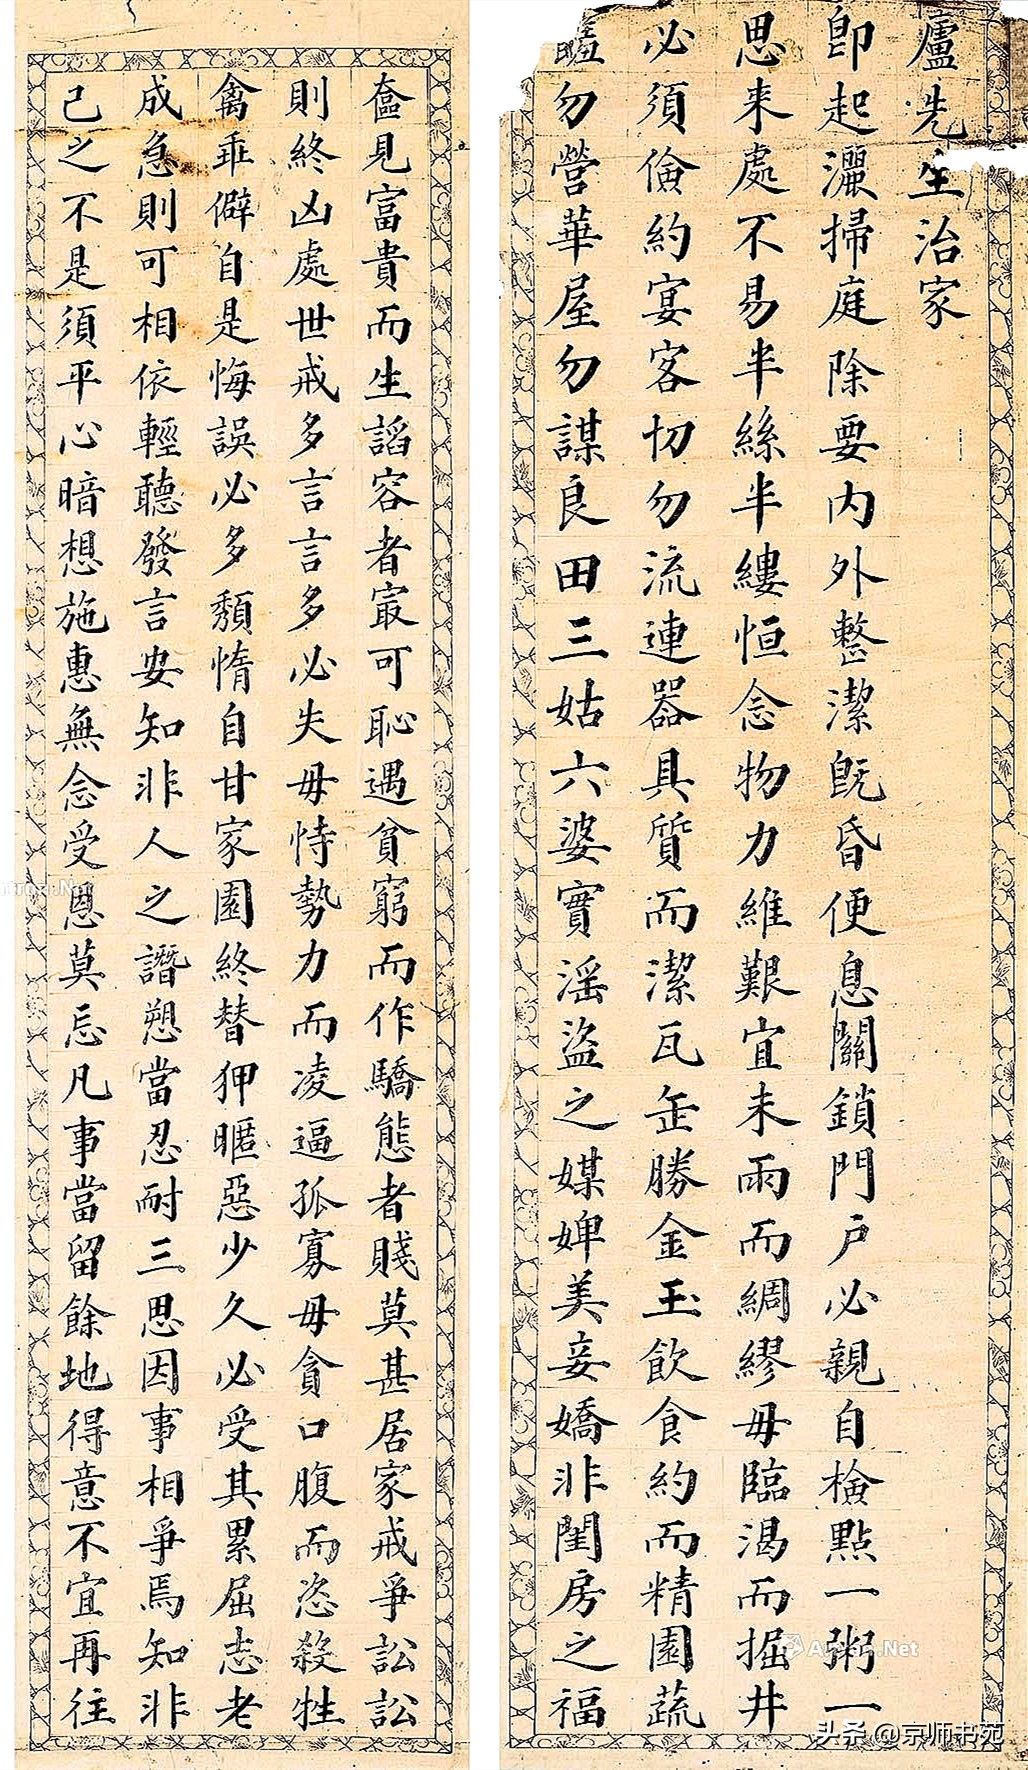 廬先生治家
即起灑掃庭除要内外整潔既昏便息關鎖門户必親自檢點一粥一
思来處不易半絲半縷恒念物力維艱宜未雨而綢繆毋臨渴而掘井
必須儉約宴客切勿流連器具質而潔瓦缶勝金玉飲食約而精園蔬
勿營華屋勿謀良田三姑六婆實滛盜之媒婢美妾嬌非閨房之福
奩見富貴而生諂容者冣可恥遇貧窮而作驕態者賤莫甚居家戒爭訟訟
則終凶處世戒多言言多必失毋恃勢力而凌逼孤寡毋貪口腹而恣殺牲
禽乖僻自是悔誤必多頽惰自甘家園終替狎暱惡少久必受其累屈志老
成急則可相依輕聽發言安知非人之譖愬當忍耐三思因事相爭焉知非
己之不是須平心暗想施惠無念受恩莫忘凡事當留餘地得意不宜再往
头条 @京师书苑